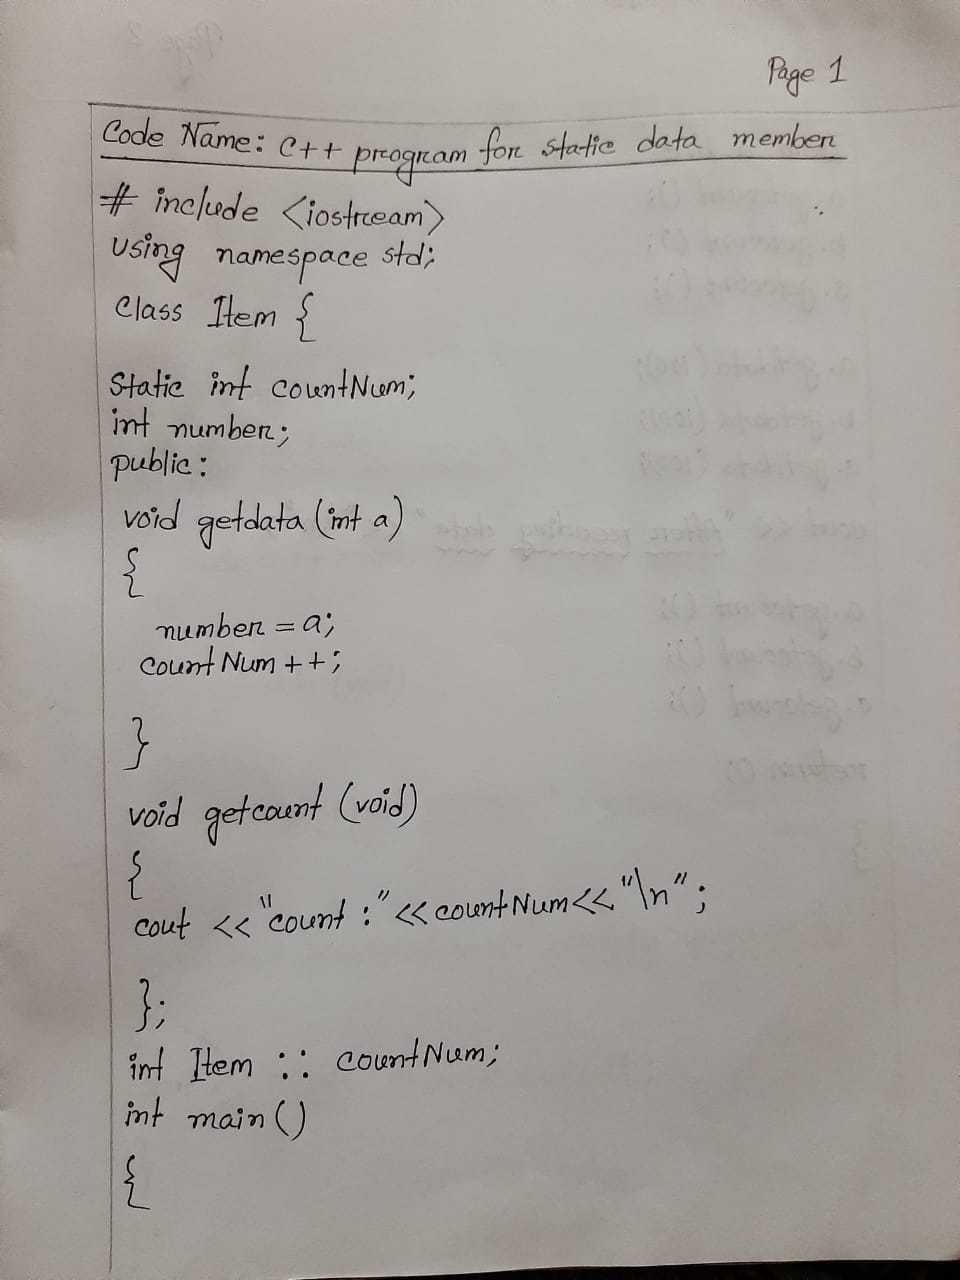 Page 1
Code Name: C++ program for static data member
# include <iostream>
using namespace std;
Class Item {
Static int countNum;
int number;
public:
void getdata (int a)
{
number = a;
countNum ++;
}
void getcount (void)
{
cout << "count :" << countNum << "\n" ;
};
int Item :: countNum;
int main ()
{